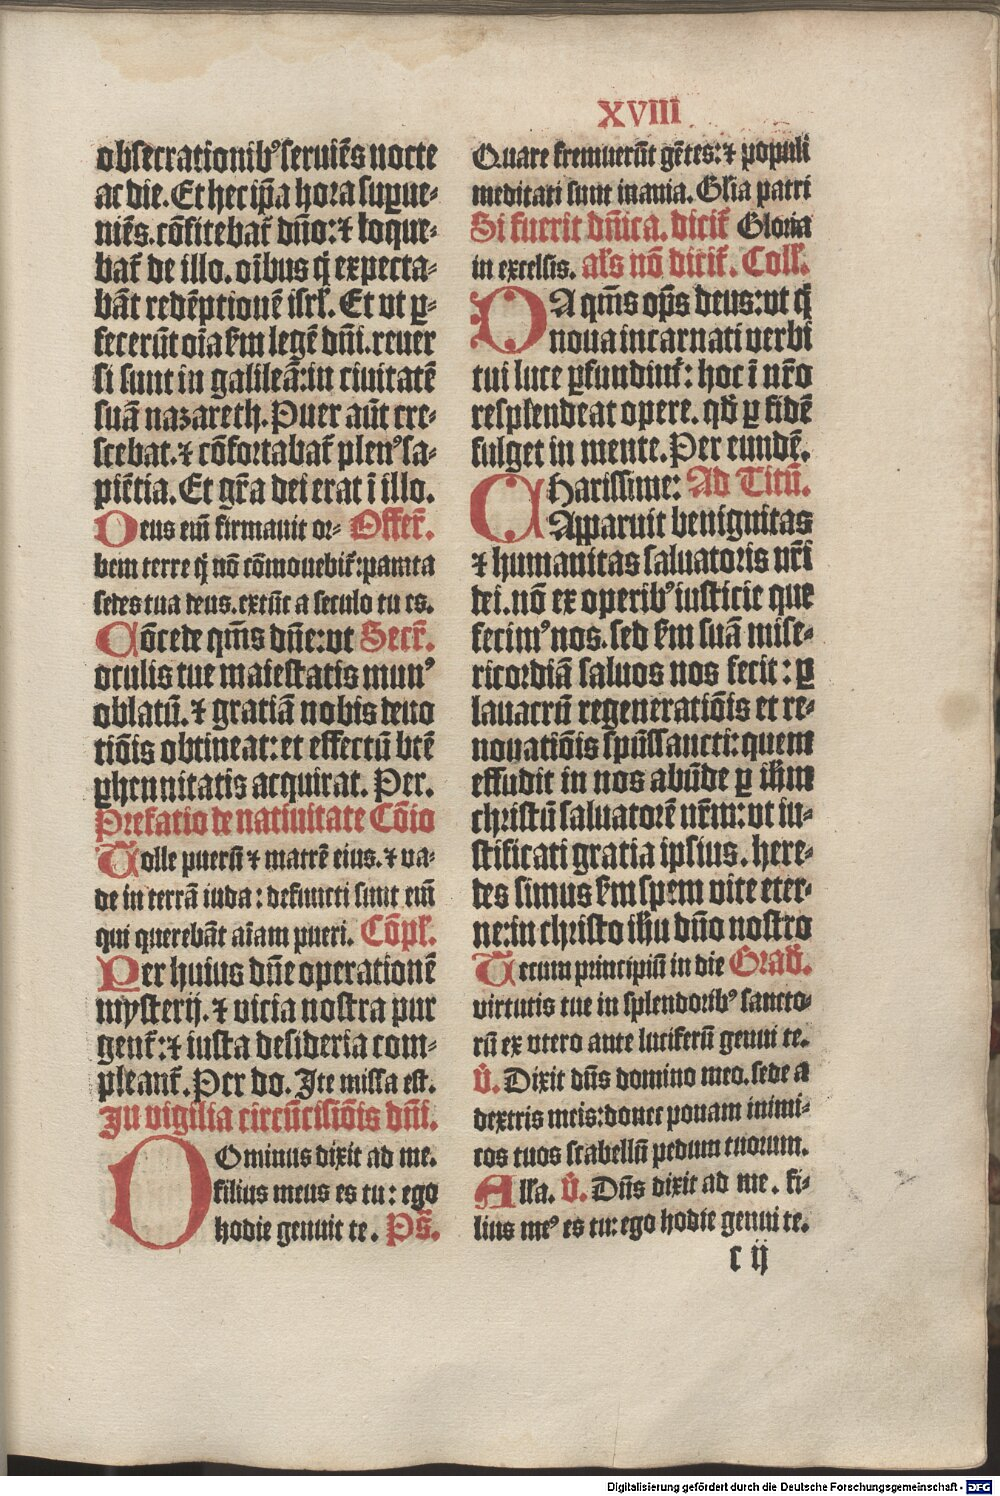 XVIII
obsecrationibꝰ seruiẽs nocte
ac die. Et hec ip̃a hora supꝑue⸗
niẽs. cõfitebat᷑ dño: ⁊ loque⸗
bat᷑ de illo. oĩbus q̃ expecta⸗
bãt redẽptionẽ isrl̃. Et vt ꝑ⸗
fecerũt oĩa s̃m legẽ dñi. reuer
si sunt in galileã: in ciuitatẽ
suã nazareth. Puer aũt cre⸗
scebat. ⁊ cõfortabat᷑ plenꝰ sa⸗
piẽtia. Et gr̃a dei erat ĩ illo.
Deus eñi firmauit or⸗ Offer̃.
bem terre q̃ nõ cõmouebit᷑: parata
sedes tua deus. extũc a seculo tu es.
Cõcede qm̃s dñe: vt Secr̃.
oculis tue maiestatis munꝰ
oblatũ. ⁊ gratiã nobis deuo
tiõis obtineat: et effectũ btẽ
ꝑhennitatis acquirat. Per.
Prefatio de natiuitate Cõio
Tolle puerũ ⁊ matrẽ eius. ⁊ va⸗
de in terrã iuda: defuncti sunt eñi
qui querebãt aĩam pueri. Cõpl̃.
Per huius dñe operationẽ
mysterij. ⁊ vicia nostra pur
gent᷑: ⁊ iusta desideria com⸗
pleant᷑. Per do. Ite missa est.
In vigilia circũcisiõis dñi.
Dominus dixit ad me.
filius meus es tu: ego
hodie genuit te. Ps̃.
Quare fremuerũt gẽtes: ⁊ populi
meditati sunt inania. Glia patri
Si fuerit dñica. dicit᷑ Gloria
in excelsis. als nõ dicit᷑. Coll̃.
DA qm̃s op̃s deus: vt q̃
noua incarnati verbi
tui luce ꝑfundimt᷑: hoc ĩ nr̃o
resplendeat opere. qd̃ ꝑ fidẽ
fulget in mente. Per eundẽ.
CHarissime: Ad Titũ.
Apparuit benignitas
⁊ humanitas saluatoris nr̃i
dei. nõ ex operibꝰ iusticie que
fecimꝰ nos. sed s̃m suã mise⸗
ricordiã saluos nos fecit: ꝑ
lauacrũ regeneratiõis et re⸗
nouatiõis sp̃ũssancti: quem
effudit in nos abũde ꝑ ih̃m
christũ saluatorẽ nr̃m: vt iu⸗
stificati gratia ipsius. here⸗
des simus s̃m spem vite eter⸗
ne: in christo ih̃u dño nostro
Tecum principiũ in die Grad̃.
virtutis tue in splendoribꝰ sancto⸗
rũ ex vtero ante luciferũ genui te.
v̉. Dixit dñs domino meo. sede a
dextris meis: donec ponam inimi⸗
cos tuos scabellũ pedum tuorum.
Alla. v̉. Dñs dixit ad me. fi⸗
lius meꝰ es tu: ego hodie genui te.
c ij
Digitalisierung gefördert durch die Deutsche Forschungsgemeinschaft - DFG